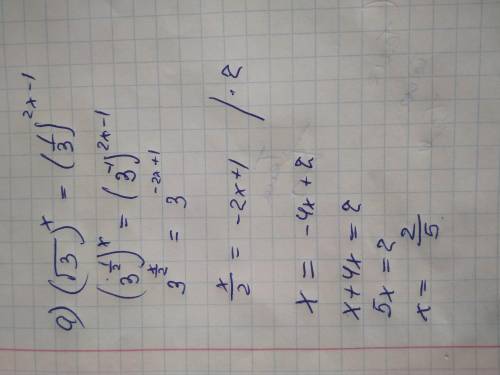 a) (√3)^x = (1/3)^{2x-1}
(3^{1/2})^x = (3^{-1})^{2x-1}
3^{x/2} = 3^{-2x+1}
x/2 = -2x+1 / · 2
x = -4x + 2
x+4x = 2
5x = 2
x = 2/5